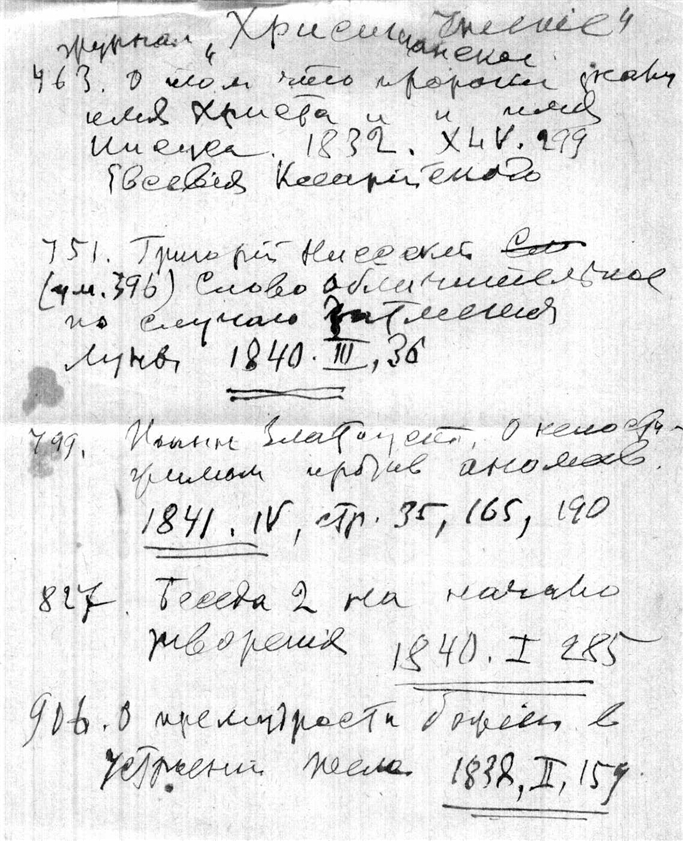 журнал „Христианское Чтение“
463. О том что пророки знали
имя Христа и и имя
Иисуса. 1832. XLV. 299
Евсевия Кесарийского
751. Григорий Нисский
(ум. 396) Слово обличительное
по случаю затмения
луны 1840. III, 36
799. Иоанн Златоуст. О непости-
жимом против аномеев.
1841. IV, стр. 35, 165, 190
827. Беседа 2 на начало
творения 1840. I 285
906. О премудрости божией в
устроении тела 1838, II, 159.